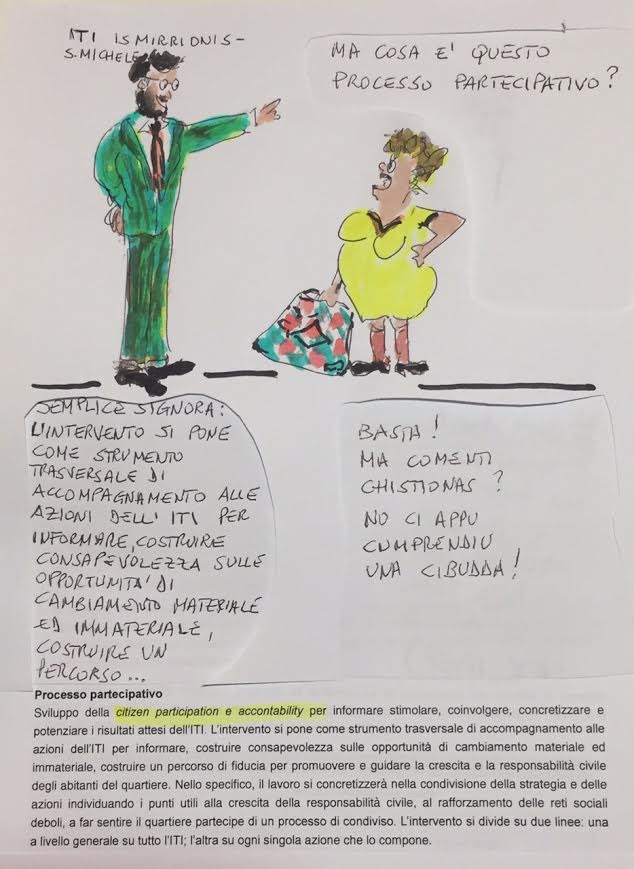 ITI IS MIRRIONIS -
S. MICHELE
MA COSA E' QUESTO
PROCESSO PARTECIPATIVO?
SEMPLICE SIGNORA:
L'INTERVENTO SI PONE
COME STRUMENTO
TRASVERSALE DI
ACCOMPAGNAMENTO ALLE
AZIONI DELL'ITI PER
INFORMARE, COSTRUIRE
CONSAPEVOLEZZA SULLE
OPPORTUNITA' DI
CAMBIAMENTO MATERIALE
ED IMMATERIALE,
COSTRUIRE UN
PERCORSO...
BASTA!
MA COMENTI
CHISTIONAS?
NO CI APPU
CUMPRENDIU
UNA CIBUDDA!
Processo partecipativo
Sviluppo della citizen participation e accontability per informare stimolare, coinvolgere, concretizzare e
potenziare i risultati attesi dell'ITI. L'intervento si pone come strumento trasversale di accompagnamento alle
azioni dell'ITI per informare, costruire consapevolezza sulle opportunità di cambiamento materiale ed
immateriale, costruire un percorso di fiducia per promuovere e guidare la crescita e la responsabilità civile
degli abitanti del quartiere. Nello specifico, il lavoro si concretizzerà nella condivisione della strategia e delle
azioni individuando i punti utili alla crescita della responsabilità civile, al rafforzamento delle reti sociali
deboli, a far sentire il quartiere partecipe di un processo di condiviso. L'intervento si divide su due linee: una
a livello generale su tutto l'ITI; l'altra su ogni singola azione che lo compone.